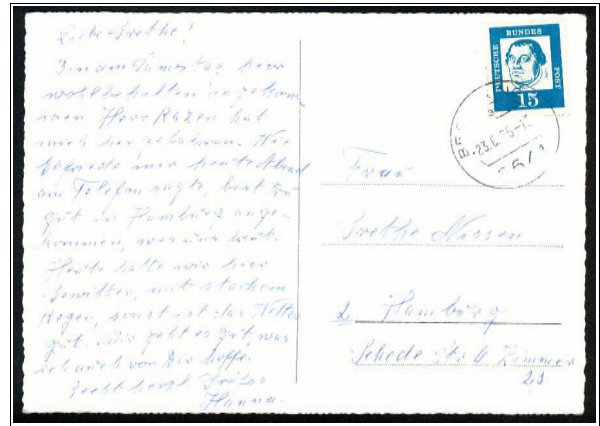 Liebe Grethe!
Bin am Donnerstag hier
wohlbehalten angekom-
men Herr hat
mich her gefahren. Wie
mir heute Abend
am Telefon sagte, bist Du
gut in Hamburg ange-
kommen, was uns freut.
Heute hatte wir hier
Gewitter, mit starkem
Regen, sonst ist das Wetter
gut. Mir geht es gut, was
ich auch von Dir hoffe.
Recht herzl. Grüße
Hanna.
DEUTSCHE BUNDES POST
15
23.6.65
Frau
Grethe Nissen
2 Hamburg
Schede Str. 6 Zimmer